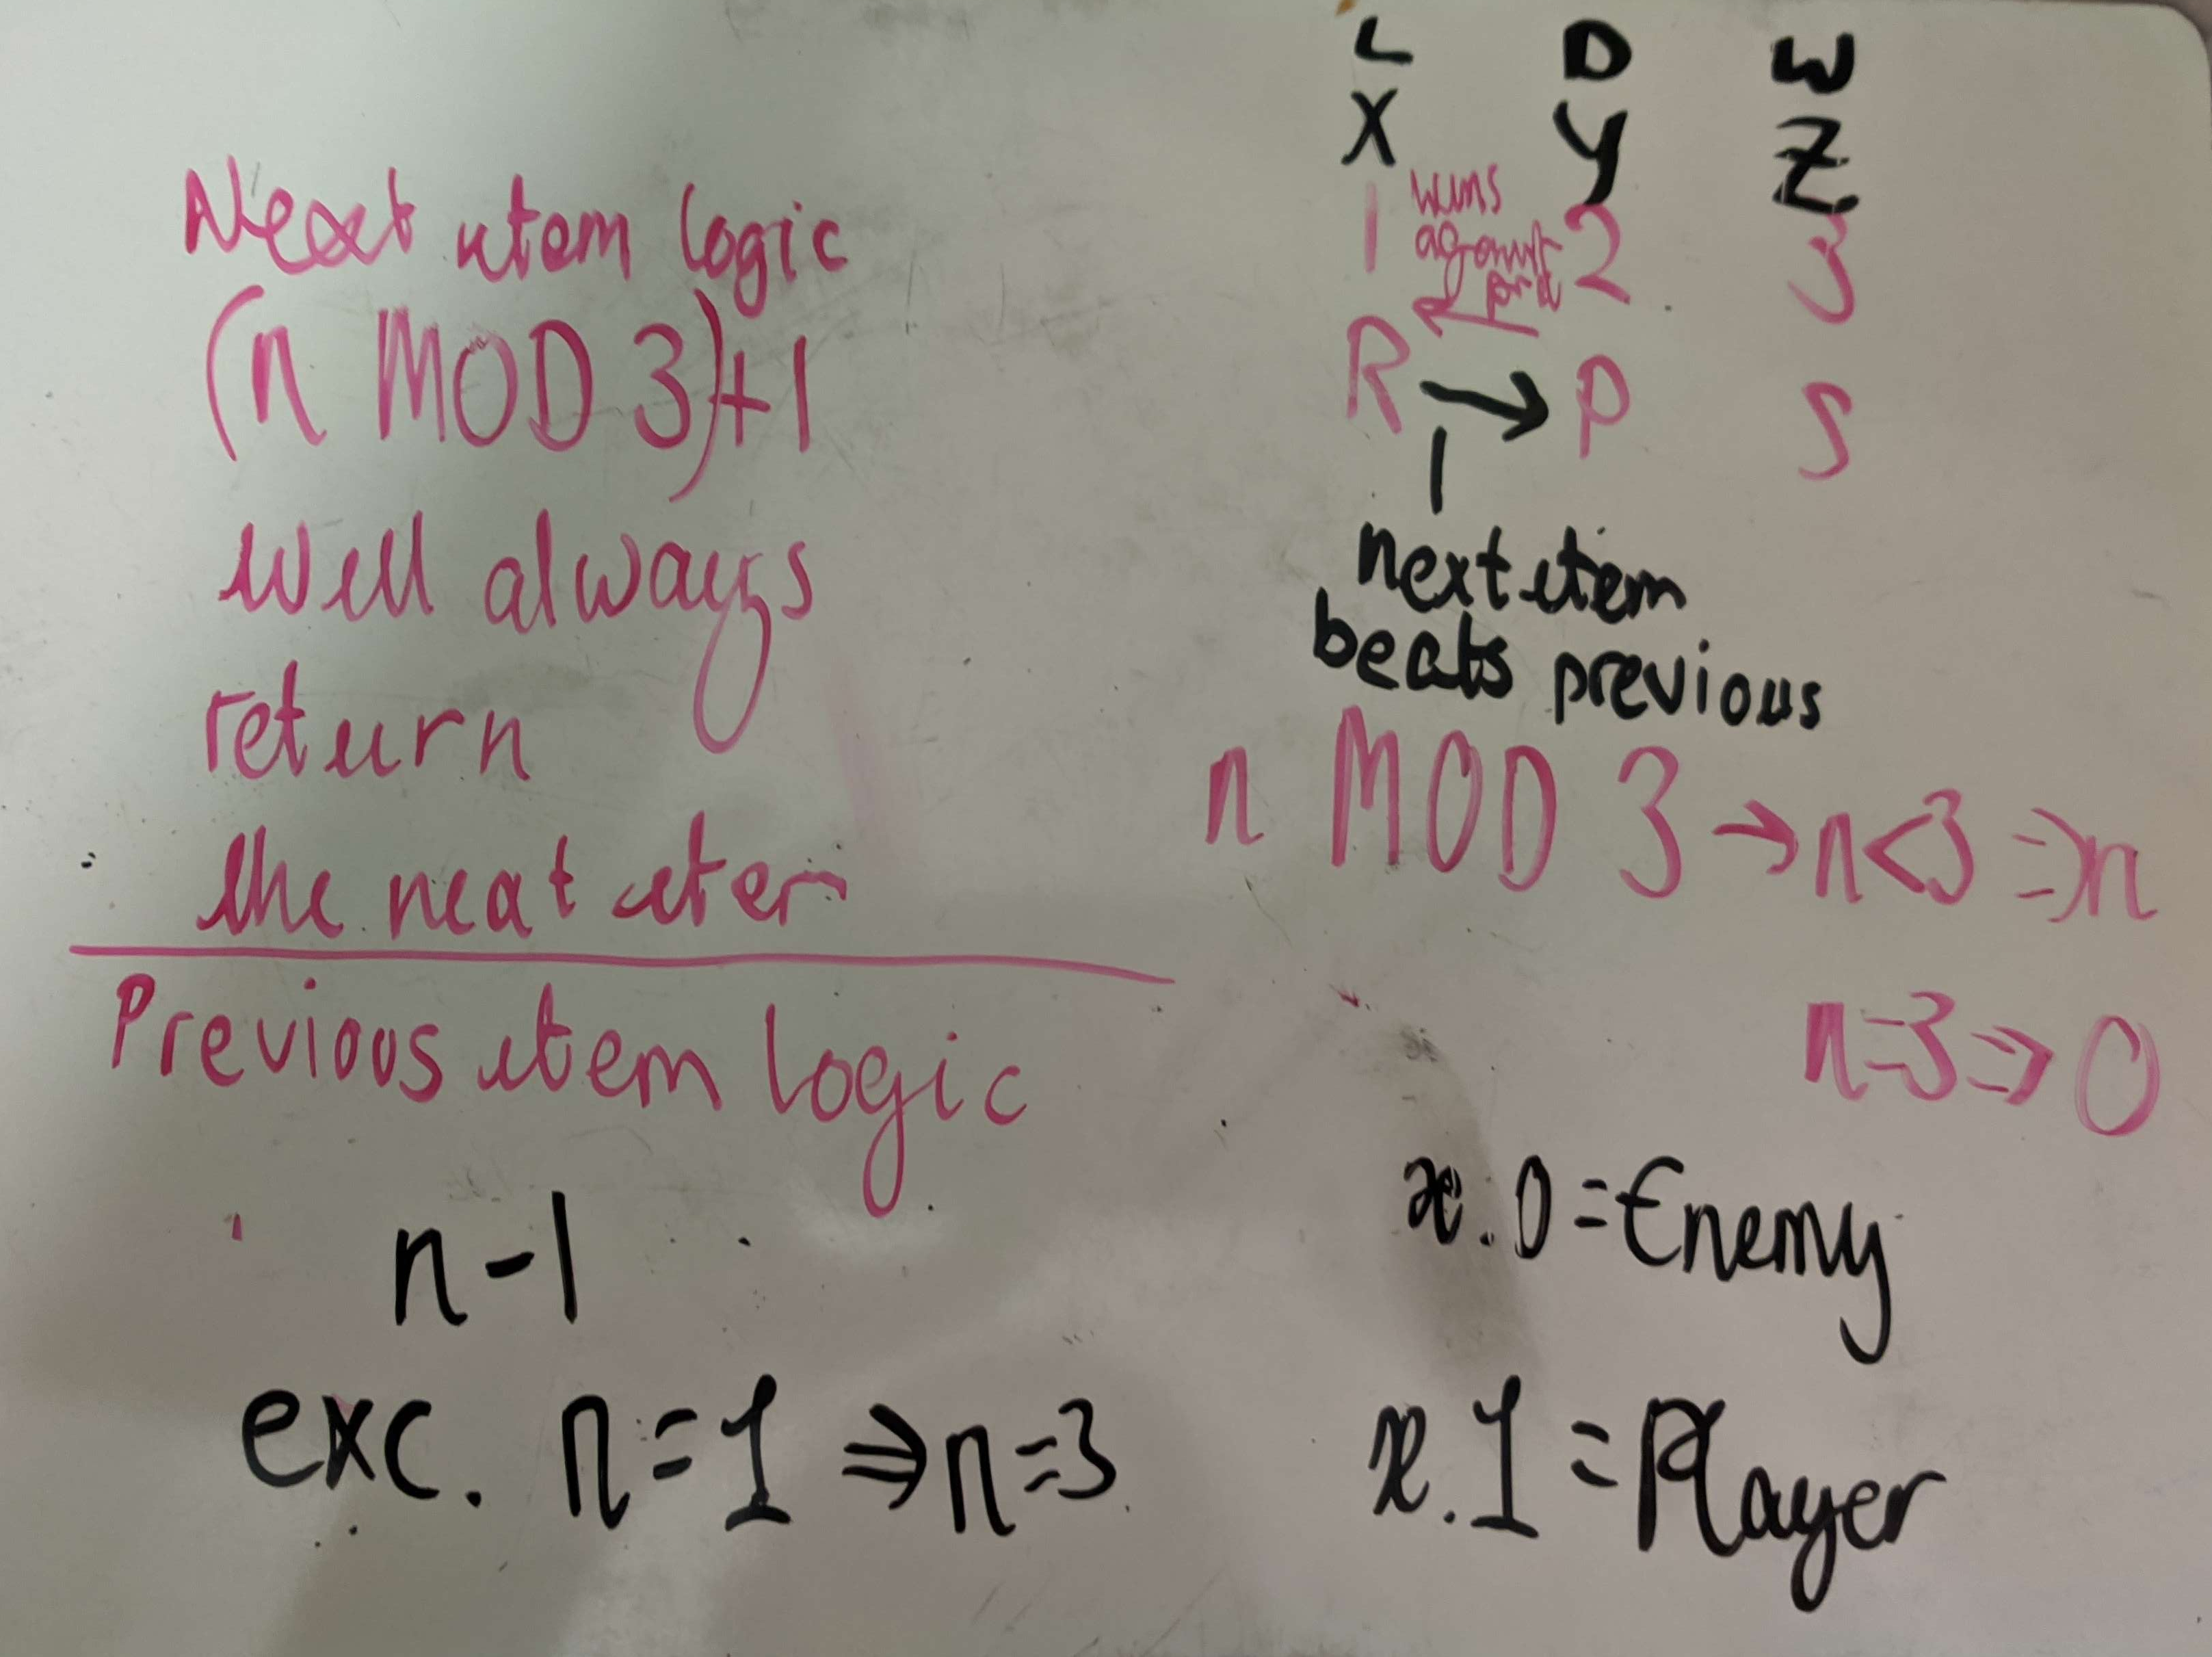 Next item logic
(n MOD 3)+1
will always
return
the next item
Previous item logic
n-1
exc. n=1 ⇒ n=3
L D W
X Y Z
1 wins against 2 3
R → P S
next item
beats previous
n MOD 3 → n<3 ⇒ n
n=3 ⇒ 0
x.0 = Enemy
x.1 = Player